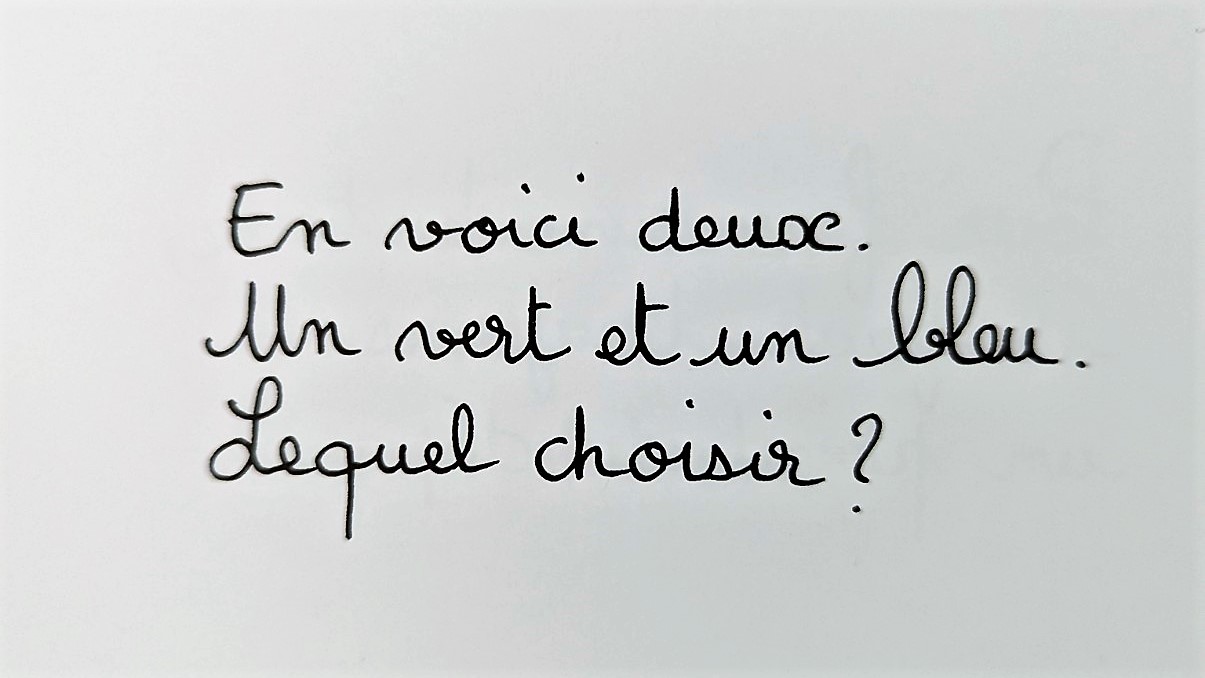 En voici deux.
Un vert et un bleu.
Lequel choisir ?